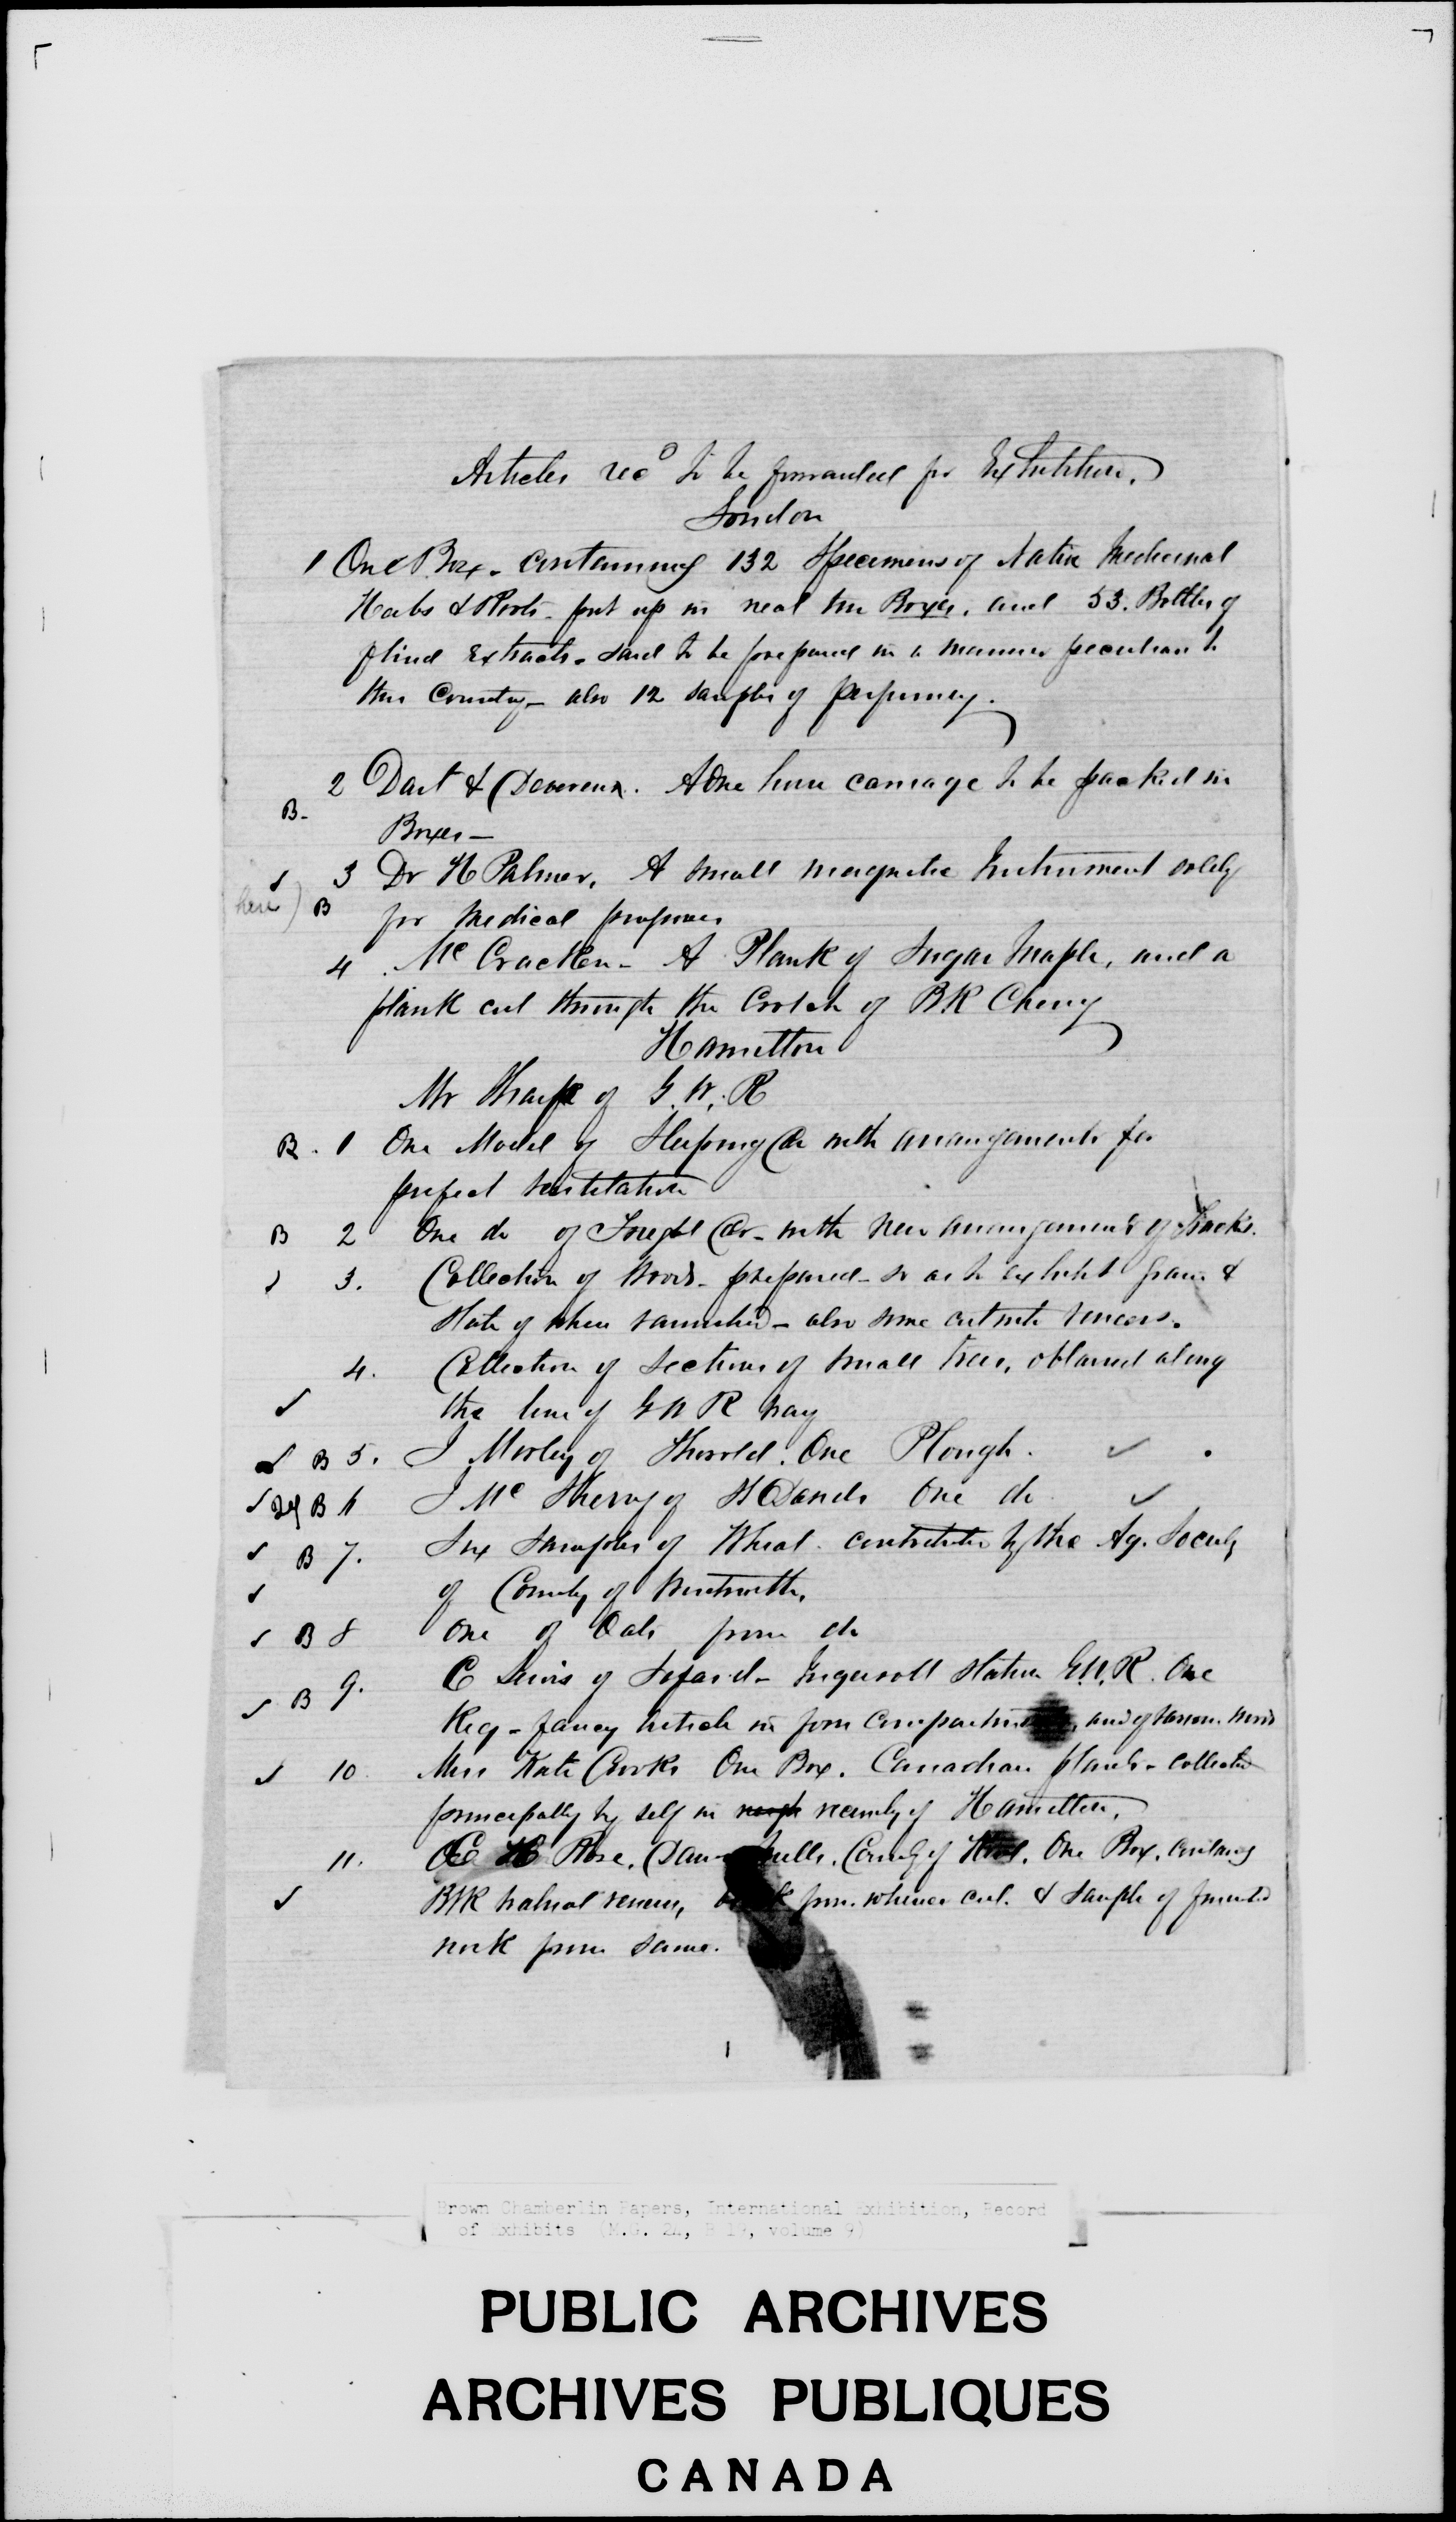 Articles recd to be forwarded for Exhibition.
London
1 One Box - containing 132 Specimens of Native Medicinal
Herbs & Roots - put up in neat tin Boxes, and 53. Bottles of
fluid Extracts - said to be prepared in a manner peculiar to
this Country - also 12 samples of perfumery.
2 Dart & Devereux. A One horse carriage to be packed in
B-
Boxes -
✓ 3 Dr H Palmer, A small magnetic Instrument solely
here) B for Medical purposes
4 . Mc Cracken - A Plank of Sugar Maple, and a
plank cut through the Crotch of BK Cherry
Hamilton
Mr Sharpe of G. W. R
B . 1 One Model of Sleeping Car with arrangements for
perfect ventilation
B 2 One do of Freight Car - with new arrangement of Trucks.
✓ 3. Collection of Woods - prepared - so as to exhibit grain &
state of when varnished - also some cut into veneers.
4. Collection of Sections of small trees, obtained along
✓ the line of G W R way
✓ B 5. J Morley of Thorold. One Plough. ✓ .
✓ B 6 J Mc Sherry of St Davids One do ✓
✓ B 7. Six Samples of Wheat - contributed by the Ag. Society
✓ of County of Wentworth.
✓ B 8 One of Oats from do
✓ B 9. C Lewis of Salford - Ingersoll Station G.W.R. One
Keg - fancy Article in four compartments, and of various woods
✓ 10. Miss Kate Crooks One Box. Canadian plants - collected
principally by self in rough vicinity of Hamilton.
11. H Rose, Mills, County of Kent. One Box, containing
✓ B/K walnut veneers, from whence cut. & sample of
work from same.
Brown Chamberlin Papers, International Exhibition, Record
of Exhibits (M.G. 24, B 19, volume 9)
PUBLIC ARCHIVES
ARCHIVES PUBLIQUES
CANADA